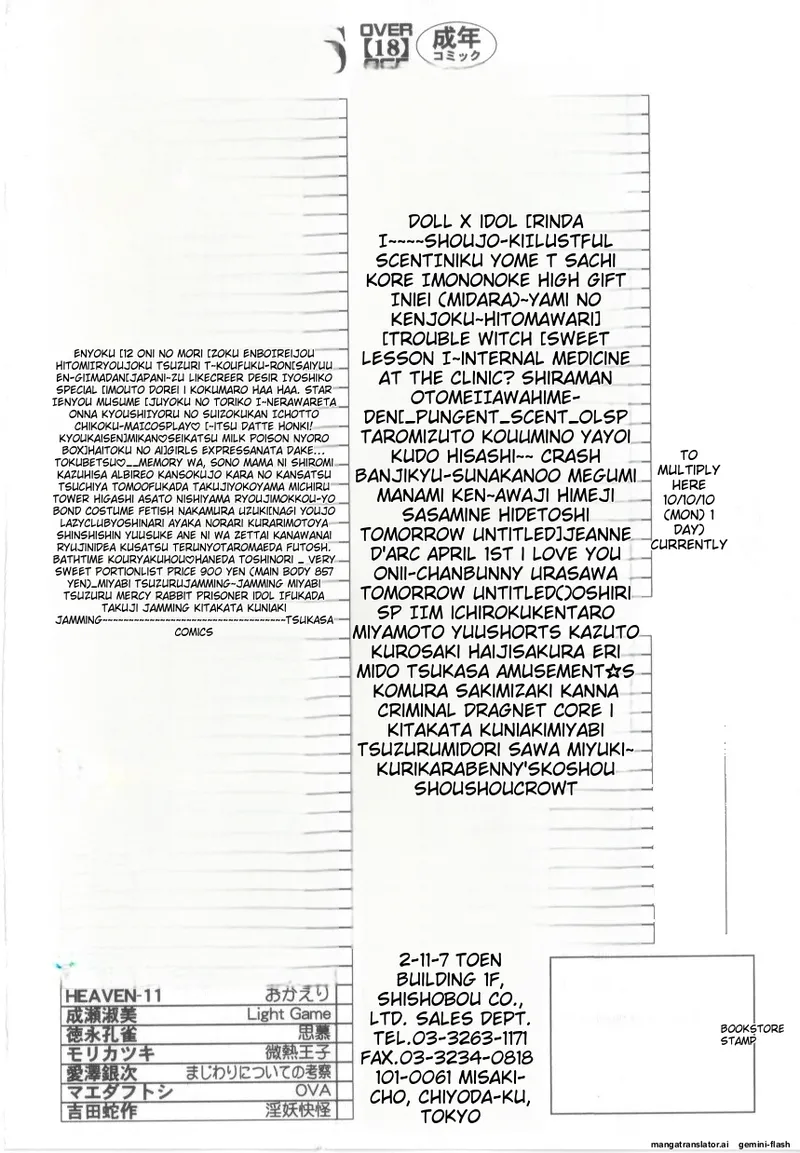 OVER
【18】
成年
コミック
DOLL X IDOL [RINDA
I~~~~SHOUJO-KIILUSTFUL
SCENTINIKU YOME T SACHI
KORE IMONONOKE HIGH GIFT
INIEI (MIDARA)~YAMI NO
KENJOKU~HITOMAWARI]
[TROUBLE WITCH [SWEET
LESSON I~INTERNAL MEDICINE
AT THE CLINIC? SHIRAMAN
OTOMEIIAWAHIME-
DEN[_PUNGENT_SCENT_OLSP
TAROMIZUTO KOUUMINO YAYOI
KUDO HISASHI~~ CRASH
BANJIKYU-SUNAKANOO MEGUMI
MANAMI KEN~AWAJI HIMEJI
SASAMINE HIDETOSHI
TOMORROW UNTITLED]JEANNE
D'ARC APRIL 1ST I LOVE YOU
ONII-CHANBUNNY URASAWA
TOMORROW UNTITLED()OSHIRI
SP IIM ICHIROKUKENTARO
MIYAMOTO YUUSHORTS KAZUTO
KUROSAKI HAIJISAKURA ERI
MIDO TSUKASA AMUSEMENT☆S
KOMURA SAKIMIZAKI KANNA
CRIMINAL DRAGNET CORE I
KITAKATA KUNIAKIMIYABI
TSUZURUMIDORI SAWA MIYUKI~
KURIKARABENNY'SKOSHOU
SHOUSHOUCROWT
ENYOKU [12 ONI NO MORI [ZOKU ENBOIREIJOU
HITOMIIRYOUJOKU TSUZURI T-KOUFUKU-RON[SAIYUU
EN-GI[MADAN[JAPANI-ZU LIKECREER DESIR IYOSHIKO
SPECIAL [IMOUTO DOREI I KOKUMARO HAA HAA. STAR
IENYOU MUSUME [JUYOKU NO TORIKO I~NERAWARETA
ONNA KYOUSHIIYORU NO SUIZOKUKAN ICHOTTO
CHIKOKU~MAICOSPLAY♡ [~ITSU DATTE HONKI!
KYOUKAISEN]MIKAN♡SEIKATSU MILK POISON NYORO
BOX]HAITOKU NO AI]GIRLS EXPRESSANATA DAKE...
TOKUBETSU♡__MEMORY WA, SONO MAMA NI SHIROMI
KAZUHISA ALBIREO KANSOKUJO KARA NO KANSATSU
TSUCHIYA TOMOOFUKADA TAKUJIYOKOYAMA MICHIRU
TOWER HIGASHI ASATO NISHIYAMA RYOUJIMOKKOU-YO
BOND COSTUME FETISH NAKAMURA UZUKI[NAGI YOUJO
LAZYCLUBYOSHINARI AYAKA NORARI KURARIMOTOYA
SHINSHISHIN YUUSUKE ANE NI WA ZETTAI KANAWANAI
RYUJINIDEA KUSATSU TERUNYOTAROMAEDA FUTOSH.
BATHTIME KOURYAKUHOU♡HANEDA TOSHINORI _ VERY
SWEET PORTIONLIST PRICE 900 YEN (MAIN BODY 857
YEN)_MIYABI TSUZURUJAMMING~JAMMING MIYABI
TSUZURU MERCY RABBIT PRISONER IDOL IFUKADA
TAKUJI JAMMING KITAKATA KUNIAKI
JAMMING~~~~~~~~~~~~~~~~~~~~~~~~~~~~~~~~~~~TSUKASA
COMICS
TO
MULTIPLY
HERE
10/10/10
(MON) 1
DAY)
CURRENTLY
HEAVEN-11 おかえり
成瀬淑美 Light Game
徳永孔雀 思慕
モリカツキ 微熱王子
愛澤銀次 まじわりについての考察
マエダフトシ OVA
吉田蛇作 淫妖快怪
2-11-7 TOEN
BUILDING 1F,
SHISHOBOU CO.,
LTD. SALES DEPT.
TEL.03-3263-1171
FAX.03-3234-0818
101-0061 MISAKI-
CHO, CHIYODA-KU,
TOKYO
BOOKSTORE
STAMP
mangatranslator.ai gemini-flash